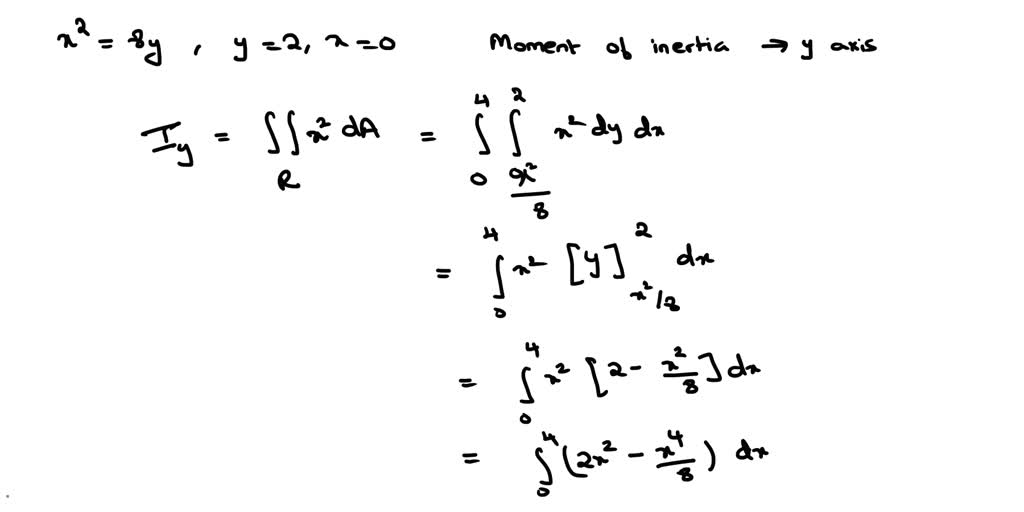 x² = 8y , y = 2, x = 0 Moment of inertia → y axis
I_y = ∬_R x² dA = ∫₀⁴ ∫_{x²/8}^2 x² dy dx
= ∫₀⁴ x² [y]_{x²/8}^2 dx
= ∫₀⁴ x² [2 - x²/8] dx
= ∫₀⁴ (2x² - x⁴/8) dx